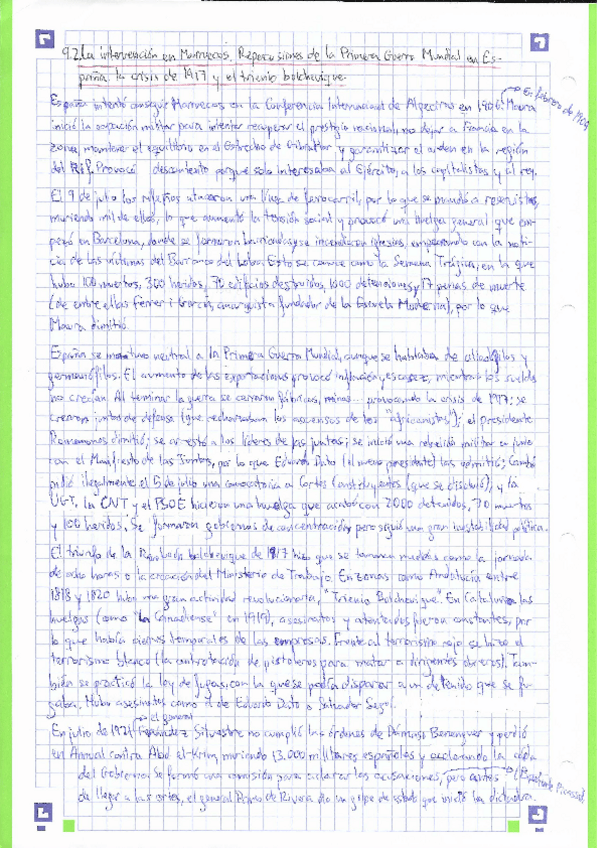 9.2. La intervención en Marruecos. Repercusiones de la Primera Guerra Mundial en Es-
paña: la crisis de 1917 y el trienio bolchevique.
España intentó conseguir Marruecos en la Conferencia Internacional de Algeciras en 1906. Maura
→ En febrero de 1909
inició la ocupación militar para intentar recuperar el prestigio nacional, no dejar a Francia en la
zona, mantener el equilibrio en el Estrecho de Gibraltar y garantizar el orden en la región
del Rif. Provocó descontento porque solo interesaba al Ejército, a los capitalistas y al rey.
El 9 de julio los rifeños atacaron una línea de ferrocarril, por lo que se mandó a reservistas,
muriendo mil de ellos, lo que aumentó la tensión social y provocó una huelga general que em-
pezó en Barcelona, donde se formaron barricadas y se incendiaron iglesias, empeorando con la noti-
cia de las víctimas del Barranco del Lobo. Esto se conoce como la Semana Trágica, en la que
hubo 100 muertos, 300 heridos, 70 edificios destruidos, 1000 detenciones y 17 penas de muerte
(de entre ellas Ferrer i Garcia, anarquista fundador de la Escuela Moderna), por lo que
Maura dimitió.
España se mantuvo neutral a la Primera Guerra Mundial, aunque se hablaba de aliadófilos y
germanófilos. El aumento de las exportaciones provocó inflación y escasez, mientras los sueldos
no crecían. Al terminar la guerra se cerraron fábricas, minas... provocando la crisis de 1917: se
crearon juntas de defensa (que rechazaban los ascensos de los "africanistas"); el presidente
Romanones dimitió; se arrestó a los líderes de las juntas; se inició una rebeldía militar en junio
con el Manifiesto de las Juntas, por lo que Eduardo Dato (el nuevo presidente) las admitió; Cambó
pidió ilegalmente el 5 de julio una convocatoria a Cortes Constituyentes (que se disolvió); y la
UGT, la CNT y el PSOE hicieron una huelga que acabó con 2000 detenidos, 70 muertos
y 100 heridos. Se formaron gobiernos de concentración, pero siguió una gran inestabilidad política.
El triunfo de la Revolución bolchevique de 1917 hizo que se tomaran medidas como la jornada
de ocho horas o la creación del Ministerio de Trabajo. En zonas como Andalucía entre
1918 y 1920 hubo una gran actividad revolucionaria, "Trienio Bolchevique". En Cataluña las
huelgas (como "La Canadiense" en 1919), asesinatos y atentados fueron constantes, por
lo que había cierres temporales de las empresas. Frente al terrorismo rojo se hizo el
terrorismo blanco (la contratación de pistoleros para matar a dirigentes obreros). Tam-
bién se practicó la ley de fugas, con la que se podía disparar a un detenido que se fu-
gaba. Hubo asesinatos como el de Eduardo Dato o Salvador Seguí.
→ el general
En julio de 1921 Fernández Silvestre no cumplió las órdenes de Dámaso Berenguer y perdió
en Annual contra Abd el-Krim, muriendo 13.000 militares españoles y acelerando la caída
del Gobierno. Se formó una comisión para aclarar las acusaciones, pero antes
→ (Expediente Picasso),
de llegar a las cortes, el general Primo de Rivera dio un golpe de estado que inició la dictadura.